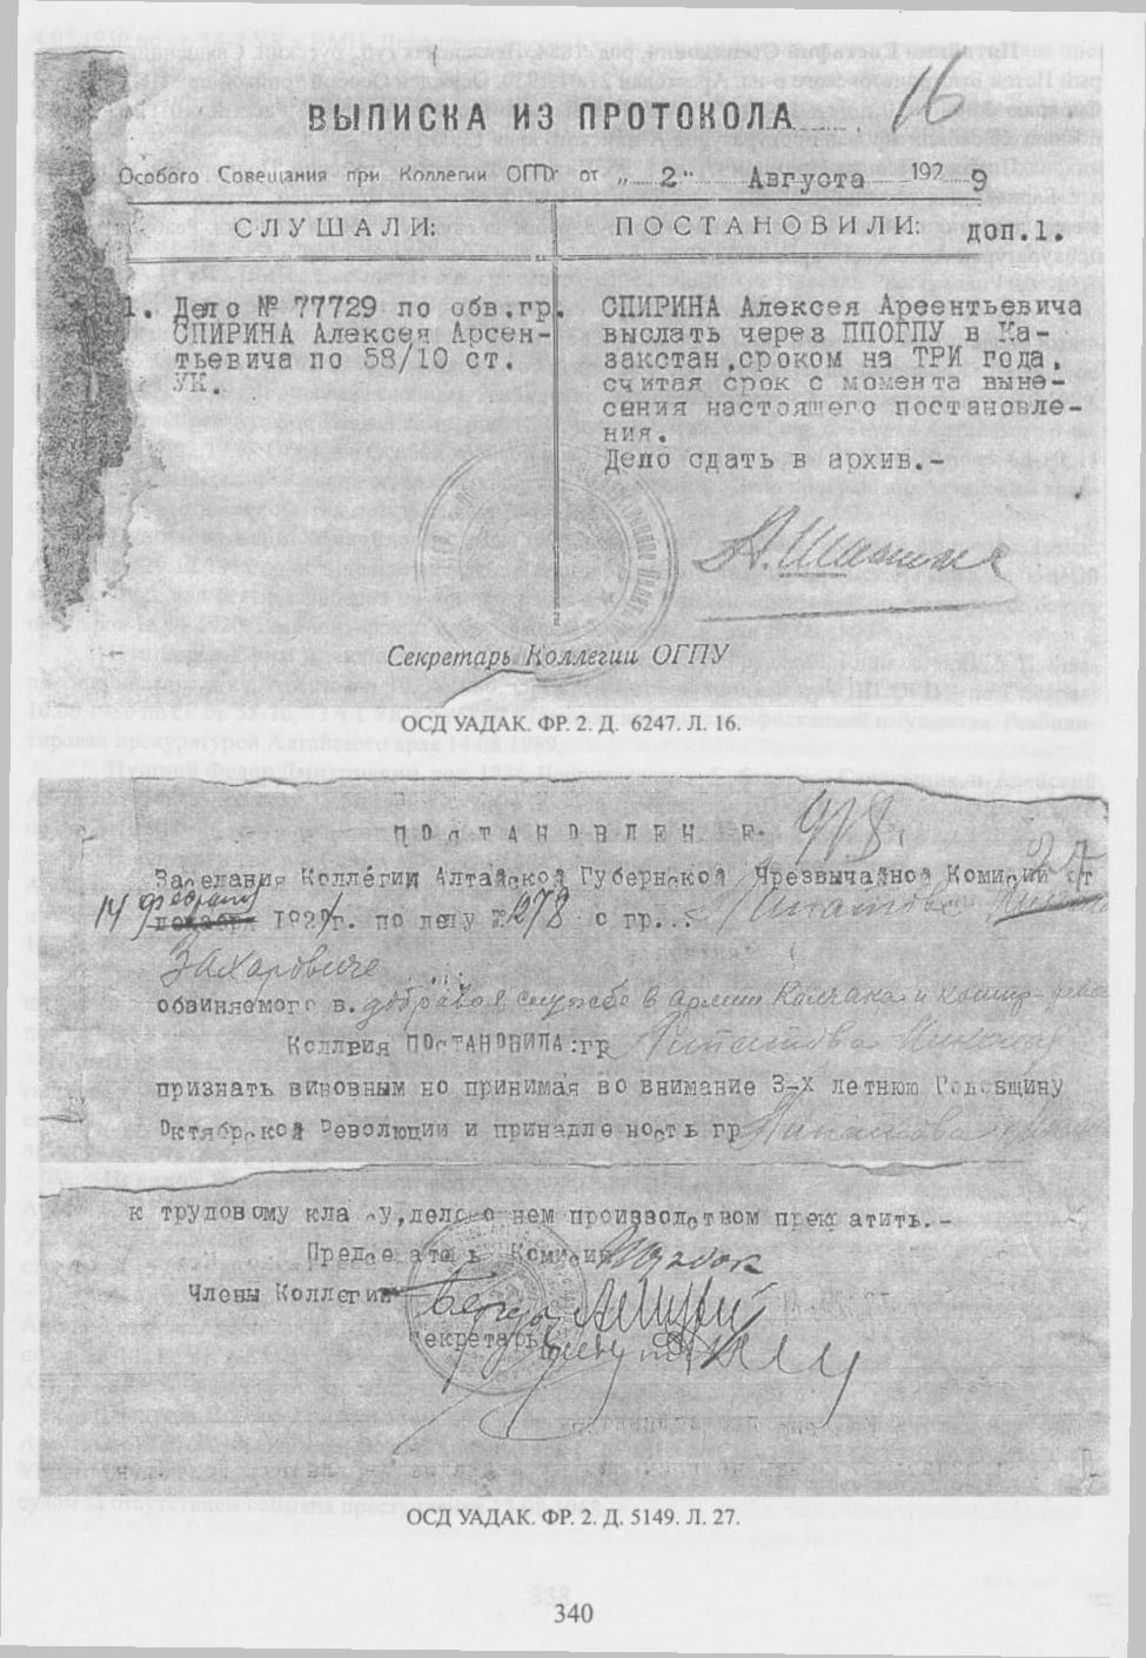 16
ВЫПИСКА ИЗ ПРОТОКОЛА
Особого Совещания при Коллегии ОГПУ от „ 2 " Августа 192 9
СЛУШАЛИ:
1. Дело № 77729 по обв.гр.
СПИРИНА Алексея Арсен-
тьевича по 58/10 ст.
УК.
ПОСТАНОВИЛИ: доп.1.
СПИРИНА Алексея Арсентьевича
выслать через ППОГПУ в Ка-
закстан,сроком на ТРИ года,
считая срок с момента выне-
сения настоящего постановле-
ния.
Дело сдать в архив.-
Секретарь Коллегии ОГПУ
ОСД УАДАК. ФР. 2. Д. 6247. Л. 16.
ПОСТАНОВЛЕНИЕ.
27
Заседания Коллегии Алтайской Губернской Чрезвычайной Комисии от
14 февраля декабря 1921г. по делу № 1278 с гр... Липатове
Захаровиче
обвиняемого в. добровол службе в армии Колчака и
Коллегия ПОСТАНОВИЛА:гр Липатова Николая
признать виновным но принимая во внимание 3-х летнюю Годовщину
Октябрской Революции и принадлежность гр Липатова
к трудовому классу,дело о нем производством прекратить.-
Председатель Комисии
Члены Коллегии
Секретарь
ОСД УАДАК. ФР. 2. Д. 5149. Л. 27.
340